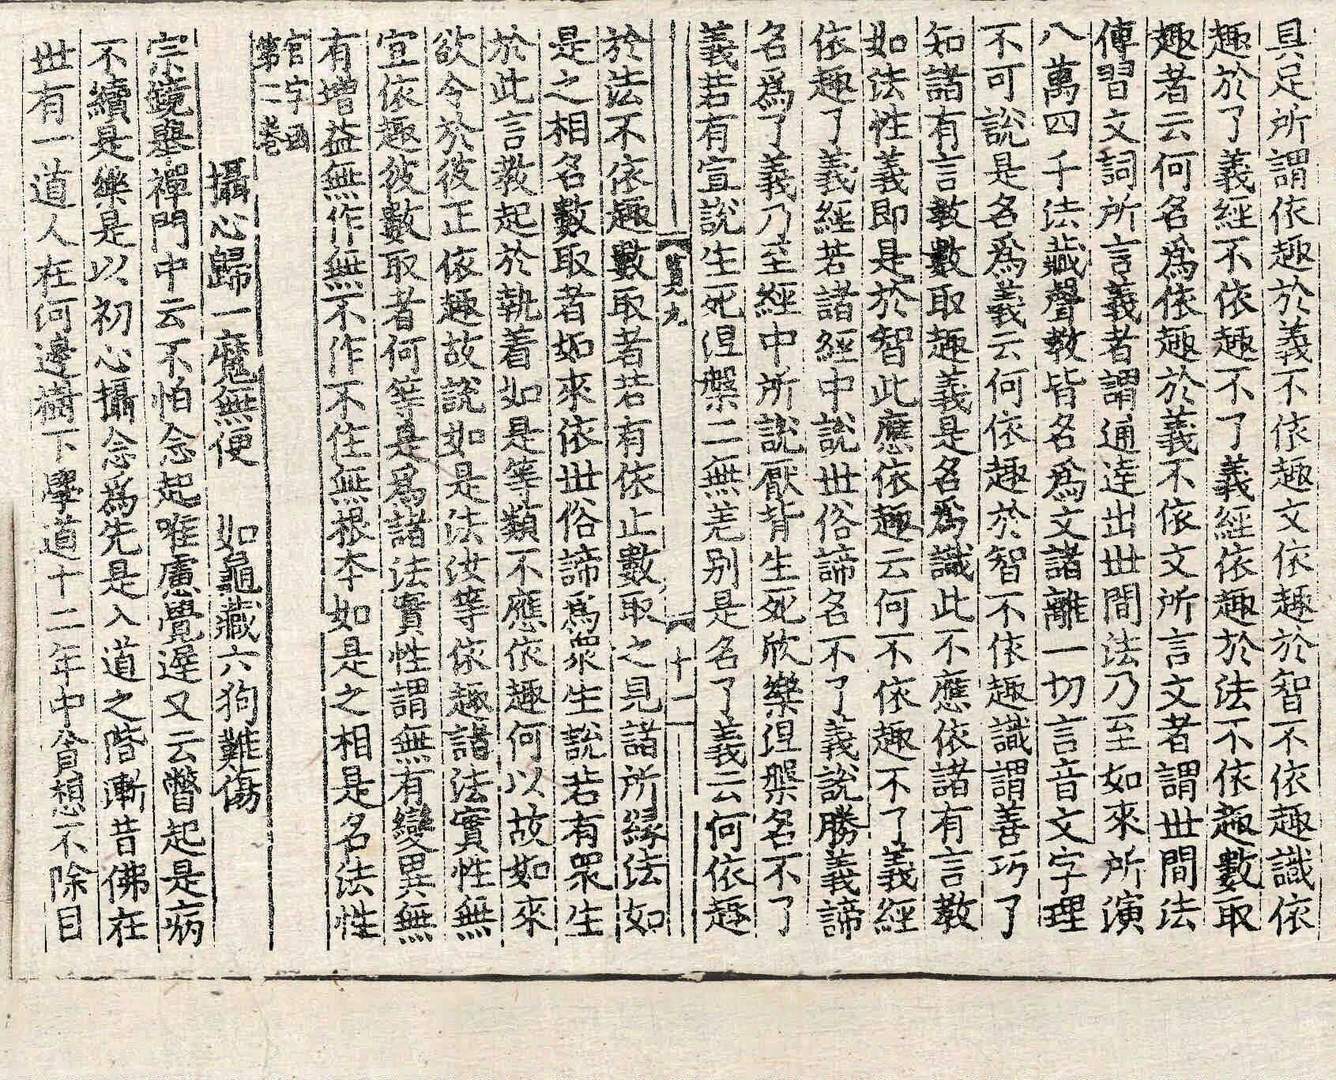 具足所謂依趣於義不依趣文依趣於智不依趣識依
趣於了義經不依趣不了義經依趣於法不依趣數取
趣者云何名爲依趣於義不依文所言文者謂世間法
傳習文詞所言義者謂通達出世間法乃至如來所演
八萬四千法藏聲教皆名爲文諸離一切言音文字理
不可說是名爲義云何依趣於智不依趣識謂善巧了
知諸有言教數取趣義是名爲識此不應依諸有言教
如法性義即是於智此應依趣云何不依趣不了義經
依趣了義經若諸經中說世俗諦名不了義說勝義諦
名爲了義乃至經中所說厭背生死欣樂涅槃名不了
義若有宣說生死涅槃二無差別是名了義云何依趣
九
十一
於法不依趣數取者若有依止數取之見諸所緣法如
是之相名數取者如來依世俗諦爲衆生說若有衆生
於此言教起於執着如是等類不應依趣何以故如來
欲令於彼正依趣故說如是法汝等依趣諸法實性無
宜依趣彼數取者何等是爲諸法實性謂無有變異無
有增益無作無不作不住無根本如是之相是名法性
官字函
第二卷
攝心歸一魔無便 如龜藏六狗難傷
宗鏡舉禪門中云不怕念起唯慮覺遲又云瞥起是病
不續是藥是以初心攝念爲先是入道之階漸昔佛在
世有一道人在何邊樹下學道十二年中貪想不除目